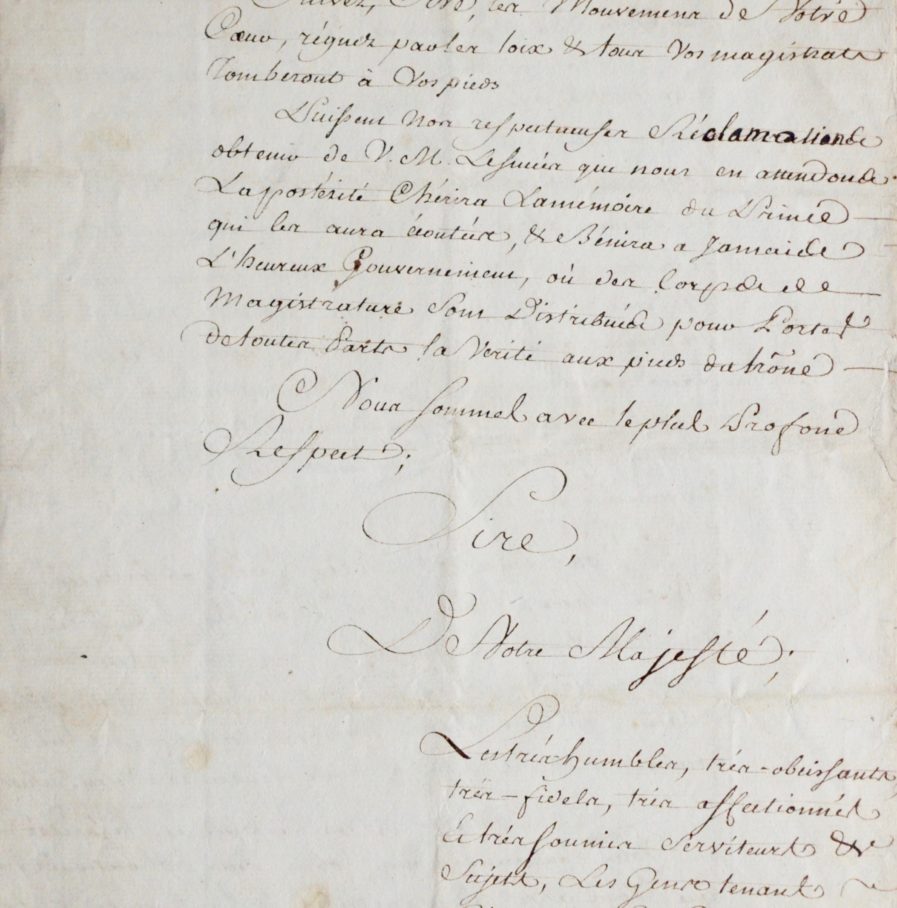 Suivez, Sire, les Mouvemens de Votre
Cœur, régnez par les loix & tous Vos magistrats
Tomberont à Vos pieds
Puissent nos respectueuses Réclamations
obtenir de V. M. Le succès que nous en attendons
La postérité Chérira La mémoire du Prince
qui les aura écoutées, & Bénira a Jamais Le
L'heureux Gouvernement, où des Corps de
Magistrature Sont Distribués pour Porter
de toutes Parts la Vérité aux pieds du trône
Nous sommes avec le plus Profond
Respect,
Sire,
De Votre Majesté,
Les très humbles, très-obeissants,
très-fidels, très affectionnés
Et très soumis Serviteurs &
Sujets, Les Gens tenants